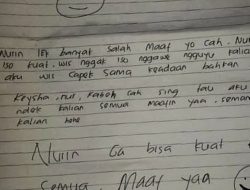 Nuriin ISK banyak Salah Maaf yo Cak. Nurin
Iso kuat. wis nggak iso nggawe ngguyu kalian
aku wis capek sama keadaan bahkan
Keysha, nur, Kabeh cak sing tau aku
ndek kalian semua maafin yaa. semua
kalian
Nuriin Ga bisa kuat
Semua, Maaf yaa